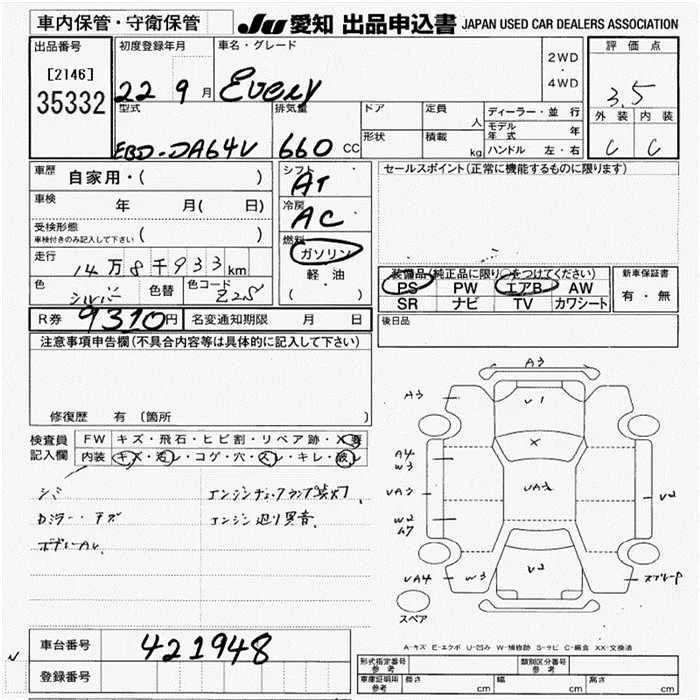 車内保管・守衛保管 JU 愛知 出品申込書 JAPAN USED CAR DEALERS ASSOCIATION
出品番号 初度登録年月 車名・グレード 2WD ・ 4WD 評価点
[2146]
35332 22 9月 Every 3.5
型式 排気量 ドア 定員 人 ディーラー・並行 外装 内装
モデル年式 年
EBD-DA64V 660 CC 形状 積載 kg ハンドル 左・右 C C
車歴 自家用・( ) シフト AT セールスポイント(正常に機能するものに限ります)
車検 年 月( 日) 冷房 AC
受検形態 車検付きのみ記入して下さい ( )
走行 14万8千933km 燃料 ガソリン 軽油 ( ・ )
装備品(純正品に限り○をつけてください) 新車保証書
色 シルバー 色替 色コード Z2S PS PW エアB AW 有・無
SR ナビ TV カワシート
R券 9310円 名変通知期限 月 日 後日品
注意事項申告欄(不具合内容等は具体的に記入して下さい)
修復歴 有(箇所
検査員記入欄 FW キズ・飛石・ヒビ割・リペア跡・X要
内装 キズ・汚レ・コゲ・穴・スレ・キレ・液レ
シミ エンジンチェックランプ点灯
Dミラー・キズ エンジン廻り異音
A3
A3 U1
X
A4
W3
UA3 UA3 U2
W2
UA4 W3 U2
スペア
A-キズ E-エクボ U-凹み W-補修跡 S-サビ C-腐食 XX-交換済
車台番号 421948
登録番号
形式指定番号 参考 類別区分番号 参考
車庫証明用 参考 長さ cm 幅 cm 高さ cm